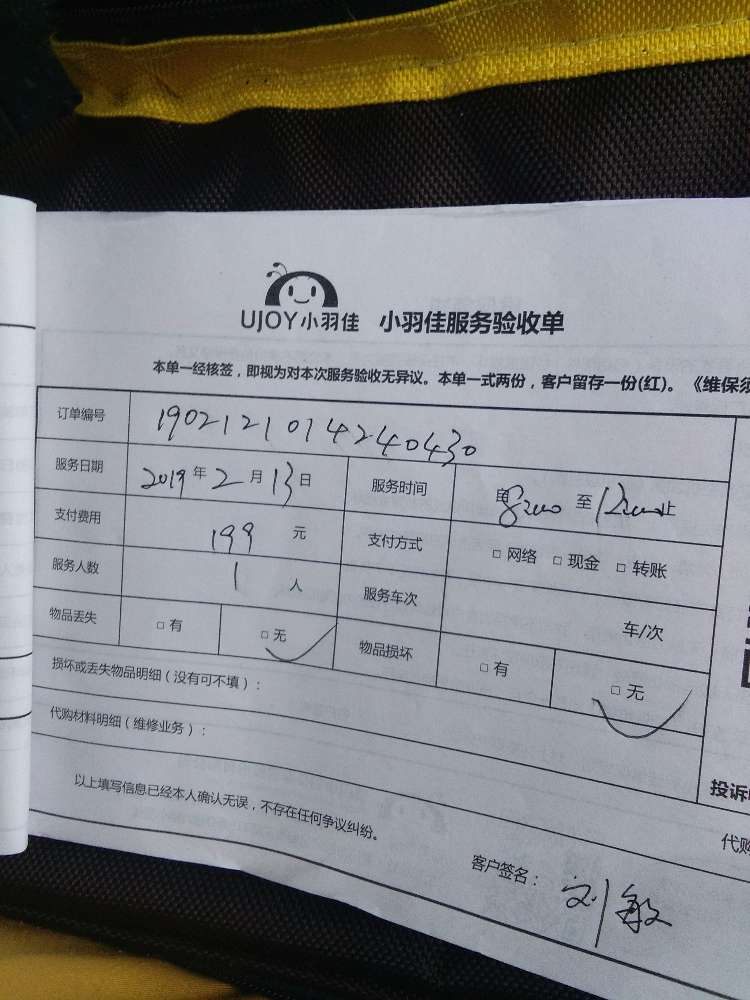 UJOY小羽佳 小羽佳服务验收单
本单一经核签，即视为对本次服务验收无异议。本单一式两份，客户留存一份(红)。《维保须
订单编号 1902121014240430
服务日期 2019年2月13日 服务时间 8:00至12:00止
支付费用 199元 支付方式 □网络 □现金 □转账
服务人数 1人 服务车次 车/次
物品丢失 □有 □无 物品损坏 □有 □无
损坏或丢失物品明细（没有可不填）：
代购材料明细（维修业务）：
投诉
以上填写信息已经本人确认无误，不存在任何争议纠纷。
代购
客户签名：刘敏